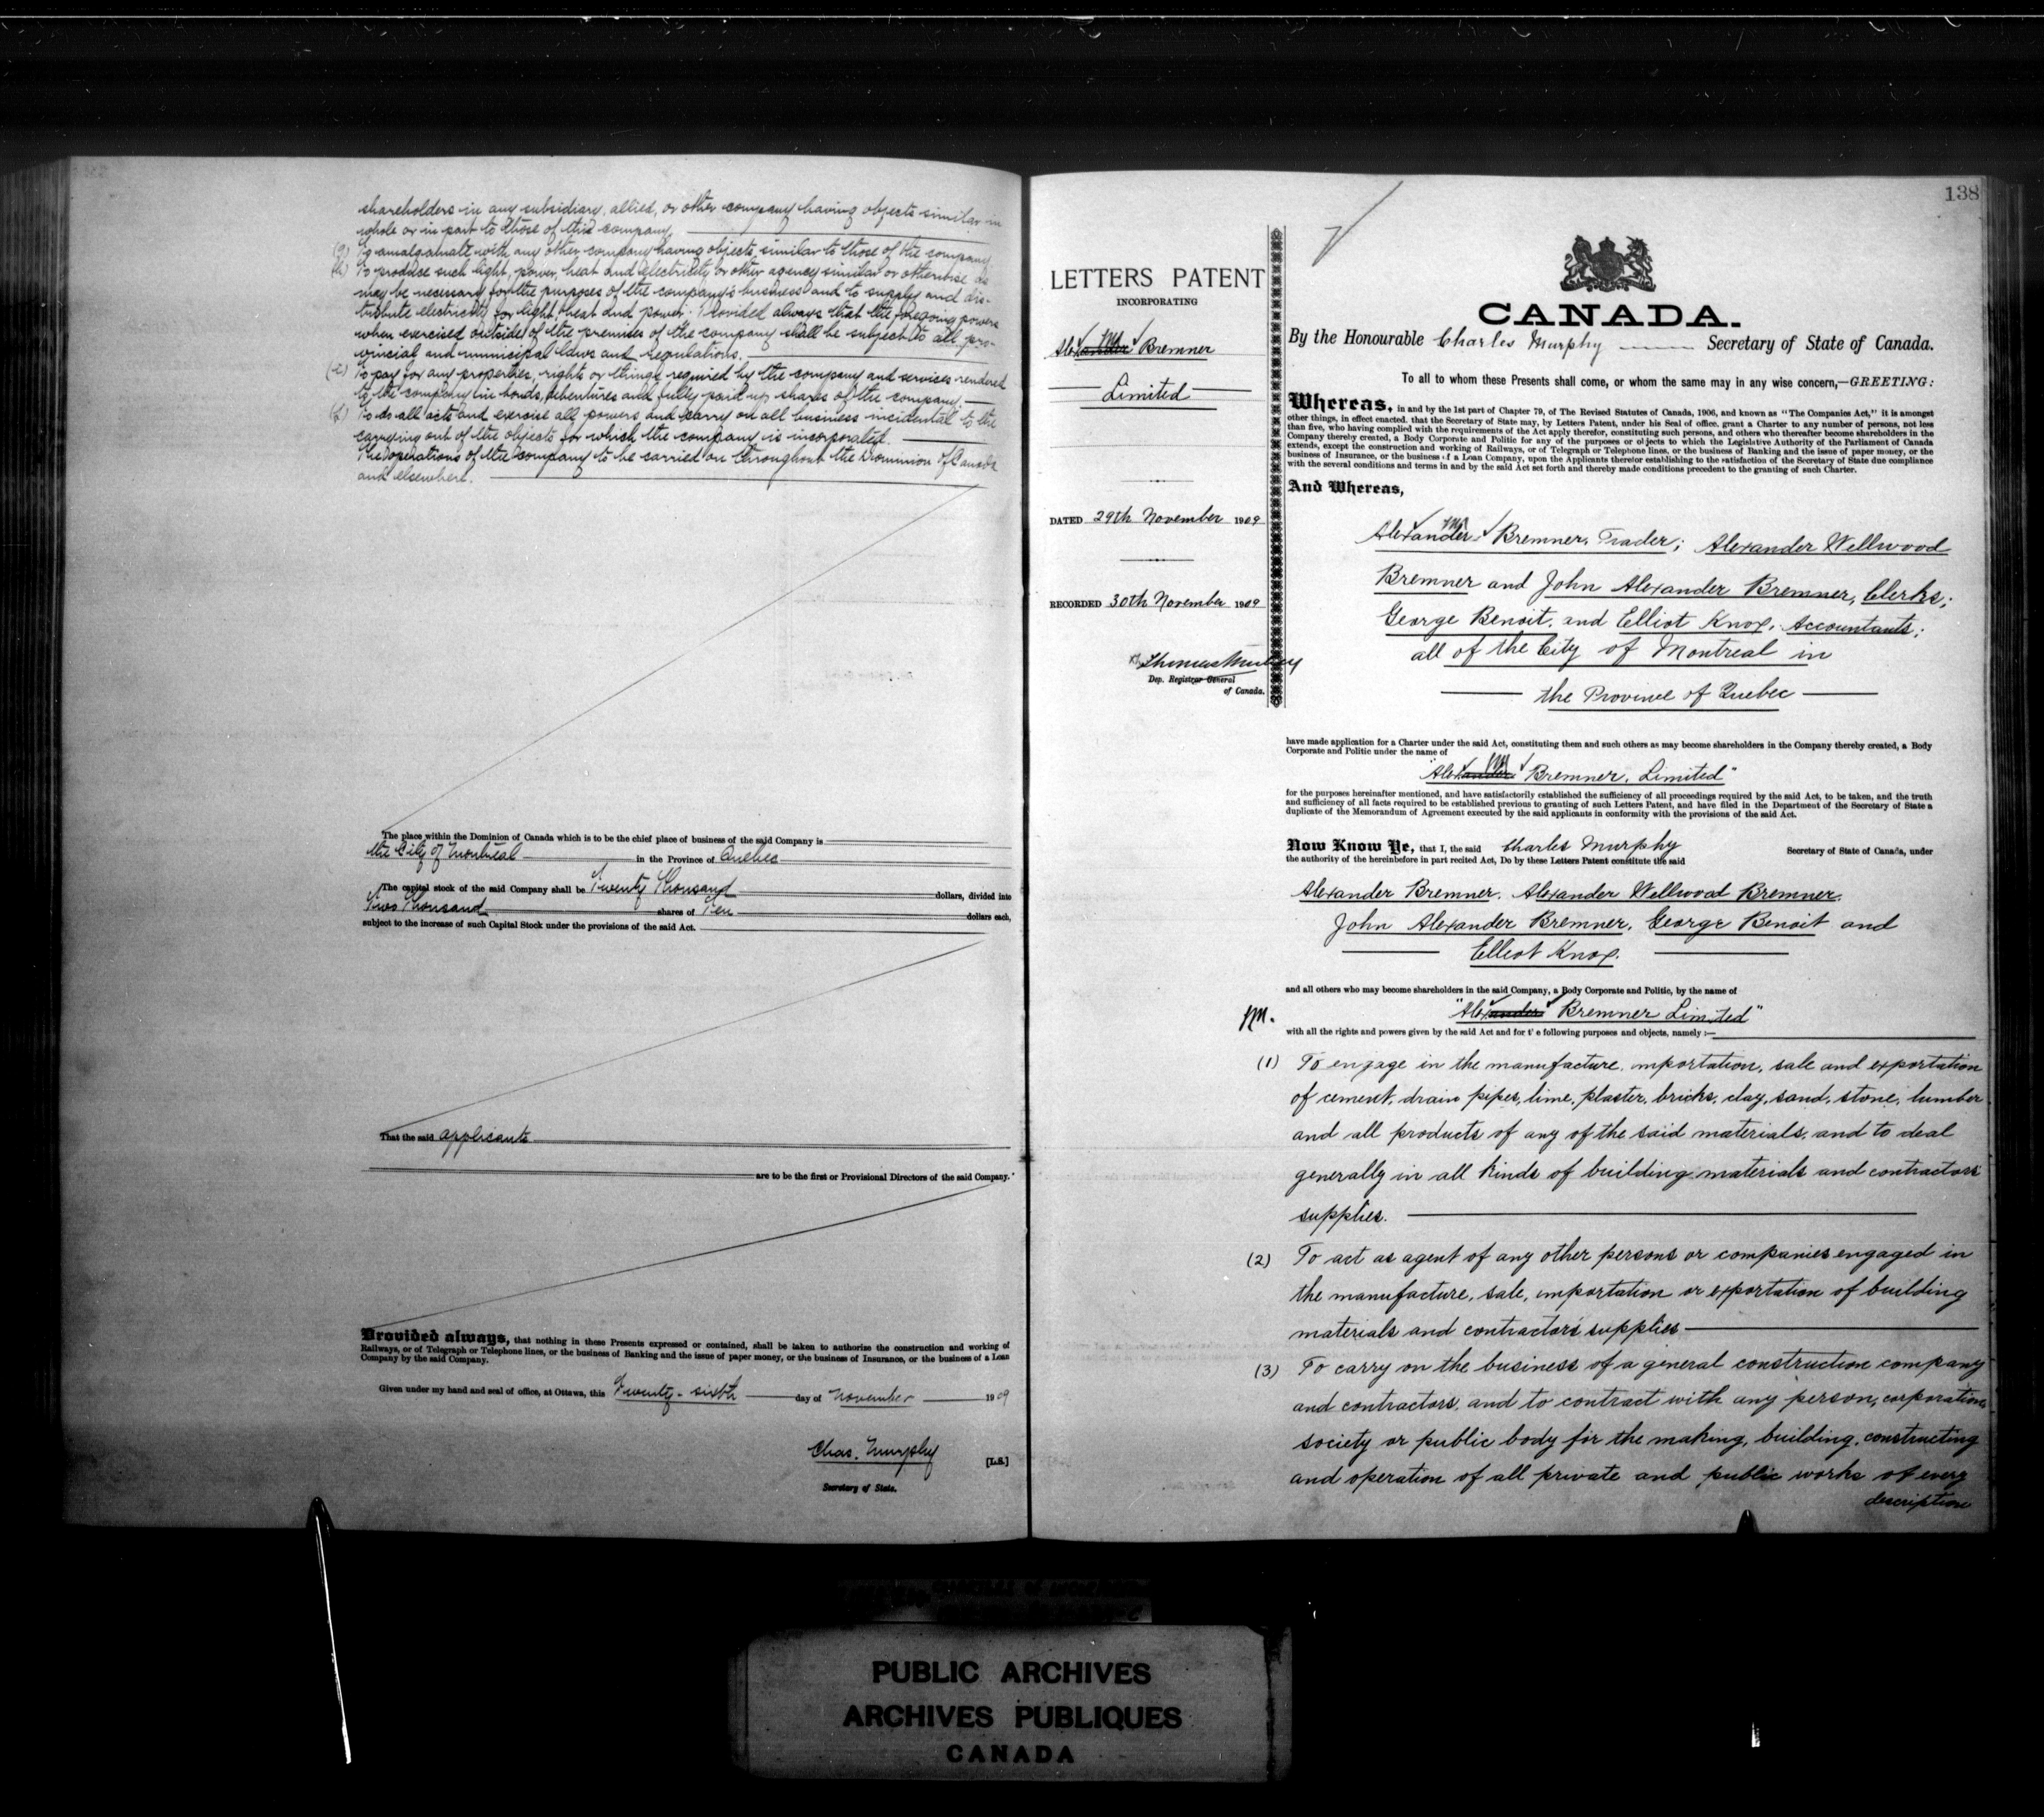 shareholders in any subsidiary, allied, or other company having objects similar in
whole or in part to those of this company.
(g) To amalgamate with any other company having objects similar to those of the company
(h) To produce such light, power, heat and electricity or other agency similar or otherwise as
may be necessary for the purposes of the company's business and to supply and dis-
tribute electricity for light, heat and power. Provided always that the foregoing powers
when exercised outside of the premises of the company shall be subject to all pro-
vincial and municipal laws and regulations.
(i) To pay for any properties, rights or things required by the company and services rendered
to the company in bonds, debentures and fully paid up shares of the company.
To do all acts and exercise all powers and carry on all business incidental to the
carrying out of the objects for which the company is incorporated.
The operations of the company to be carried on throughout the Dominion of Canada
and elsewhere.
The place within the Dominion of Canada which is to be the chief place of business of the said Company is
the City of Montreal in the Province of Quebec
The capital stock of the said Company shall be Twenty Thousand dollars, divided into
Two Thousand shares of Ten dollars each,
subject to the increase of such Capital Stock under the provisions of the said Act.
That the said applicants
are to be the first or Provisional Directors of the said Company.
Provided always, that nothing in these Presents expressed or contained, shall be taken to authorize the construction and working of
Railways, or of Telegraph or Telephone lines, or the business of Banking and the issue of paper money, or the business of Insurance, or the business of a Loan
Company by the said Company.
Given under my hand and seal of office, at Ottawa, this Twenty-sixth day of November 1909
Chas. Murphy
[L.S.]
Secretary of State.
138
LETTERS PATENT
INCORPORATING
Alexander Bremner
Limited
DATED 29th November 1909
RECORDED 30th November 1909
Thomas Mulvey
Dep. Registrar General
of Canada.
CANADA.
By the Honourable Charles Murphy Secretary of State of Canada.
To all to whom these Presents shall come, or whom the same may in any wise concern,—GREETING:
Whereas, in and by the 1st part of Chapter 79, of The Revised Statutes of Canada, 1906, and known as "The Companies Act," it is amongst
other things, in effect enacted, that the Secretary of State may, by Letters Patent, under his Seal of office, grant a Charter to any number of persons, not less
than five, who having complied with the requirements of the Act apply therefor, constituting such persons, and others who thereafter become shareholders in the
Company thereby created, a Body Corporate and Politic for any of the purposes or objects to which the Legislative Authority of the Parliament of Canada
extends, except the construction and working of Railways, or of Telegraph or Telephone lines, or the business of Banking and the issue of paper money, or the
business of Insurance, or the business of a Loan Company, upon the Applicants therefor establishing to the satisfaction of the Secretary of State due compliance
with the several conditions and terms in and by the said Act set forth and thereby made conditions precedent to the granting of such Charter.
And Whereas,
Alexander Bremner, Trader; Alexander Wellwood
Bremner and John Alexander Bremner, Clerks;
George Benoit, and Elliot Knox, Accountants;
all of the City of Montreal in
the Province of Quebec
have made application for a Charter under the said Act, constituting them and such others as may become shareholders in the Company thereby created, a Body
Corporate and Politic under the name of
"Alexander Bremner, Limited"
for the purposes hereinafter mentioned, and have satisfactorily established the sufficiency of all proceedings required by the said Act, to be taken, and the truth
and sufficiency of all facts required to be established previous to granting of such Letters Patent, and have filed in the Department of the Secretary of State a
duplicate of the Memorandum of Agreement executed by the said applicants in conformity with the provisions of the said Act.
Now Know Ye, that I, the said Charles Murphy Secretary of State of Canada, under
the authority of the hereinbefore in part recited Act, Do by these Letters Patent constitute the said
Alexander Bremner, Alexander Wellwood Bremner,
John Alexander Bremner, George Benoit and
Elliot Knox.
and all others who may become shareholders in the said Company, a Body Corporate and Politic, by the name of
"Alexander Bremner Limited"
with all the rights and powers given by the said Act and for the following purposes and objects, namely:—
(1) To engage in the manufacture, importation, sale and exportation
of cement, drain pipes, lime, plaster, bricks, clay, sand, stone, lumber
and all products of any of the said materials, and to deal
generally in all kinds of building materials and contractors'
supplies.
(2) To act as agent of any other persons or companies engaged in
the manufacture, sale, importation or exportation of building
materials and contractors' supplies
(3) To carry on the business of a general construction company
and contractors, and to contract with any person, corporation,
society or public body for the making, building, constructing
and operation of all private and public works of every
description
PUBLIC ARCHIVES
ARCHIVES PUBLIQUES
CANADA